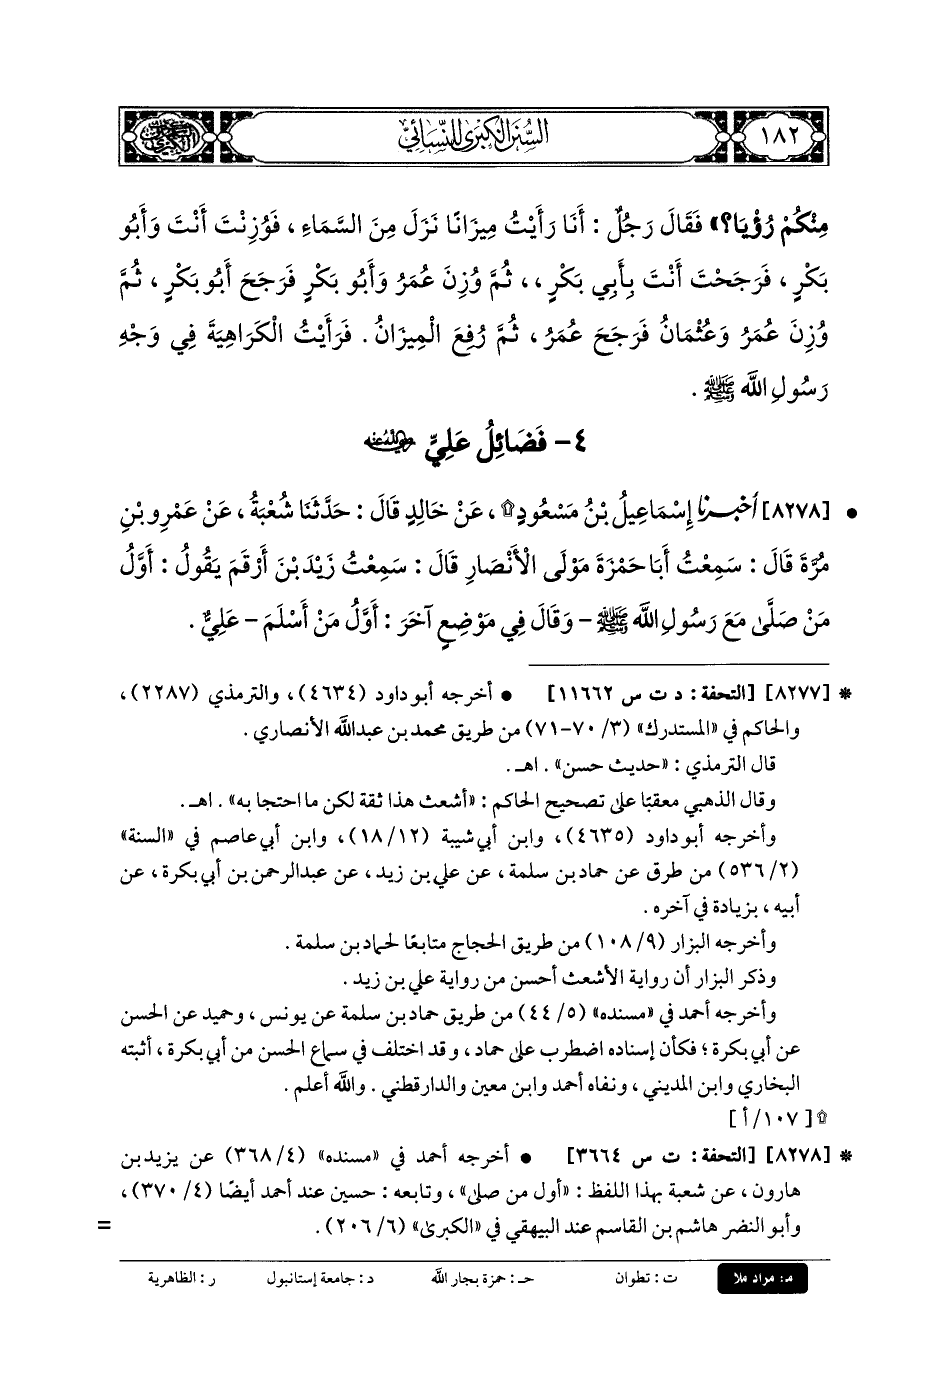 ١٨٢
السنن الكبرى للنسائي
مِنْكُمْ رُؤْيَا؟» فَقَالَ رَجُلٌ : أَنَا رَأَيْتُ مِيزَانًا نَزَلَ مِنَ السَّمَاءِ ، فَوُزِنْتَ أَنْتَ وَأَبُو
بَكْرٍ ، فَرَجَحْتَ أَنْتَ بِأَبِي بَكْرٍ ،، ثُمَّ وُزِنَ عُمَرُ وَأَبُو بَكْرٍ فَرَجَحَ أَبُو بَكْرٍ ، ثُمَّ
وُزِنَ عُمَرُ وَعُثْمَانُ فَرَجَحَ عُمَرُ ، ثُمَّ رُفِعَ الْمِيزَانُ . فَرَأَيْتُ الْكَرَاهِيَةَ فِي وَجْهِ
رَسُولِ اللَّه ﷺ .
٤- فَضَائِلُ عَلِيٍّ رضي الله عنه
• [٨٢٧٨] أخبرنا إِسْمَاعِيلُ بْنُ مَسْعُودٍ۩ ، عَنْ خَالِدٍ قَالَ : حَدَّثَنَا شُعْبَةُ ، عَنْ عَمْرِو بْنِ
مُرَّةَ قَالَ : سَمِعْتُ أَبَا حَمْزَةَ مَوْلَى الْأَنْصَارِ قَالَ : سَمِعْتُ زَيْدَ بْنَ أَرْقَمَ يَقُولُ : أَوَّلُ
مَنْ صَلَّى مَعَ رَسُولِ اللَّه ﷺ - وَقَالَ فِي مَوْضِعٍ آخَرَ : أَوَّلُ مَنْ أَسْلَمَ - عَلِيٌّ .
* [٨٢٧٧] [التحفة : د ت س ١١٦٦٢] • أخرجه أبو داود (٤٦٣٤)، والترمذي (٢٢٨٧)،
والحاكم في «المستدرك» (٣/ ٧٠-٧١) من طريق محمد بن عبدالله الأنصاري .
قال الترمذي : «حديث حسن» . اهـ .
وقال الذهبي معقبًا على تصحيح الحاكم : «أشعث هذا ثقة لكن ما احتجا به» . اهـ .
وأخرجه أبو داود (٤٦٣٥)، وابن أبي شيبة (١٢/ ١٨)، وابن أبي عاصم في «السنة»
(٢/ ٥٣٦) من طرق عن حماد بن سلمة ، عن علي بن زيد ، عن عبدالرحمن بن أبي بكرة ، عن
أبيه ، بزيادة في آخره .
وأخرجه البزار (٩/ ١٠٨) من طريق الحجاج متابعًا لحماد بن سلمة .
وذكر البزار أن رواية الأشعث أحسن من رواية علي بن زيد .
وأخرجه أحمد في «مسنده» (٥/ ٤٤) من طريق حماد بن سلمة عن يونس ، وحميد عن الحسن
عن أبي بكرة ؛ فكأن إسناده اضطرب على حماد ، وقد اختلف في سماع الحسن من أبي بكرة ، أثبته
البخاري وابن المديني ، ونفاه أحمد وابن معين والدارقطني . والله أعلم .
۩ [ ١٠٧/ أ ]
* [٨٢٧٨] [التحفة : ت س ٣٦٦٤] • أخرجه أحمد في «مسنده» (٤/ ٣٦٨) عن يزيد بن
هارون ، عن شعبة بهذا اللفظ : «أول من صلى» ، وتابعه : حسين عند أحمد أيضًا (٤/ ٣٧٠)،
وأبو النضر هاشم بن القاسم عند البيهقي في «الكبرى» (٦/ ٢٠٦). =
مـ: مراد ملا ت : تطوان حـ : حمزة بجار الله د : جامعة إستانبول ر : الظاهرية